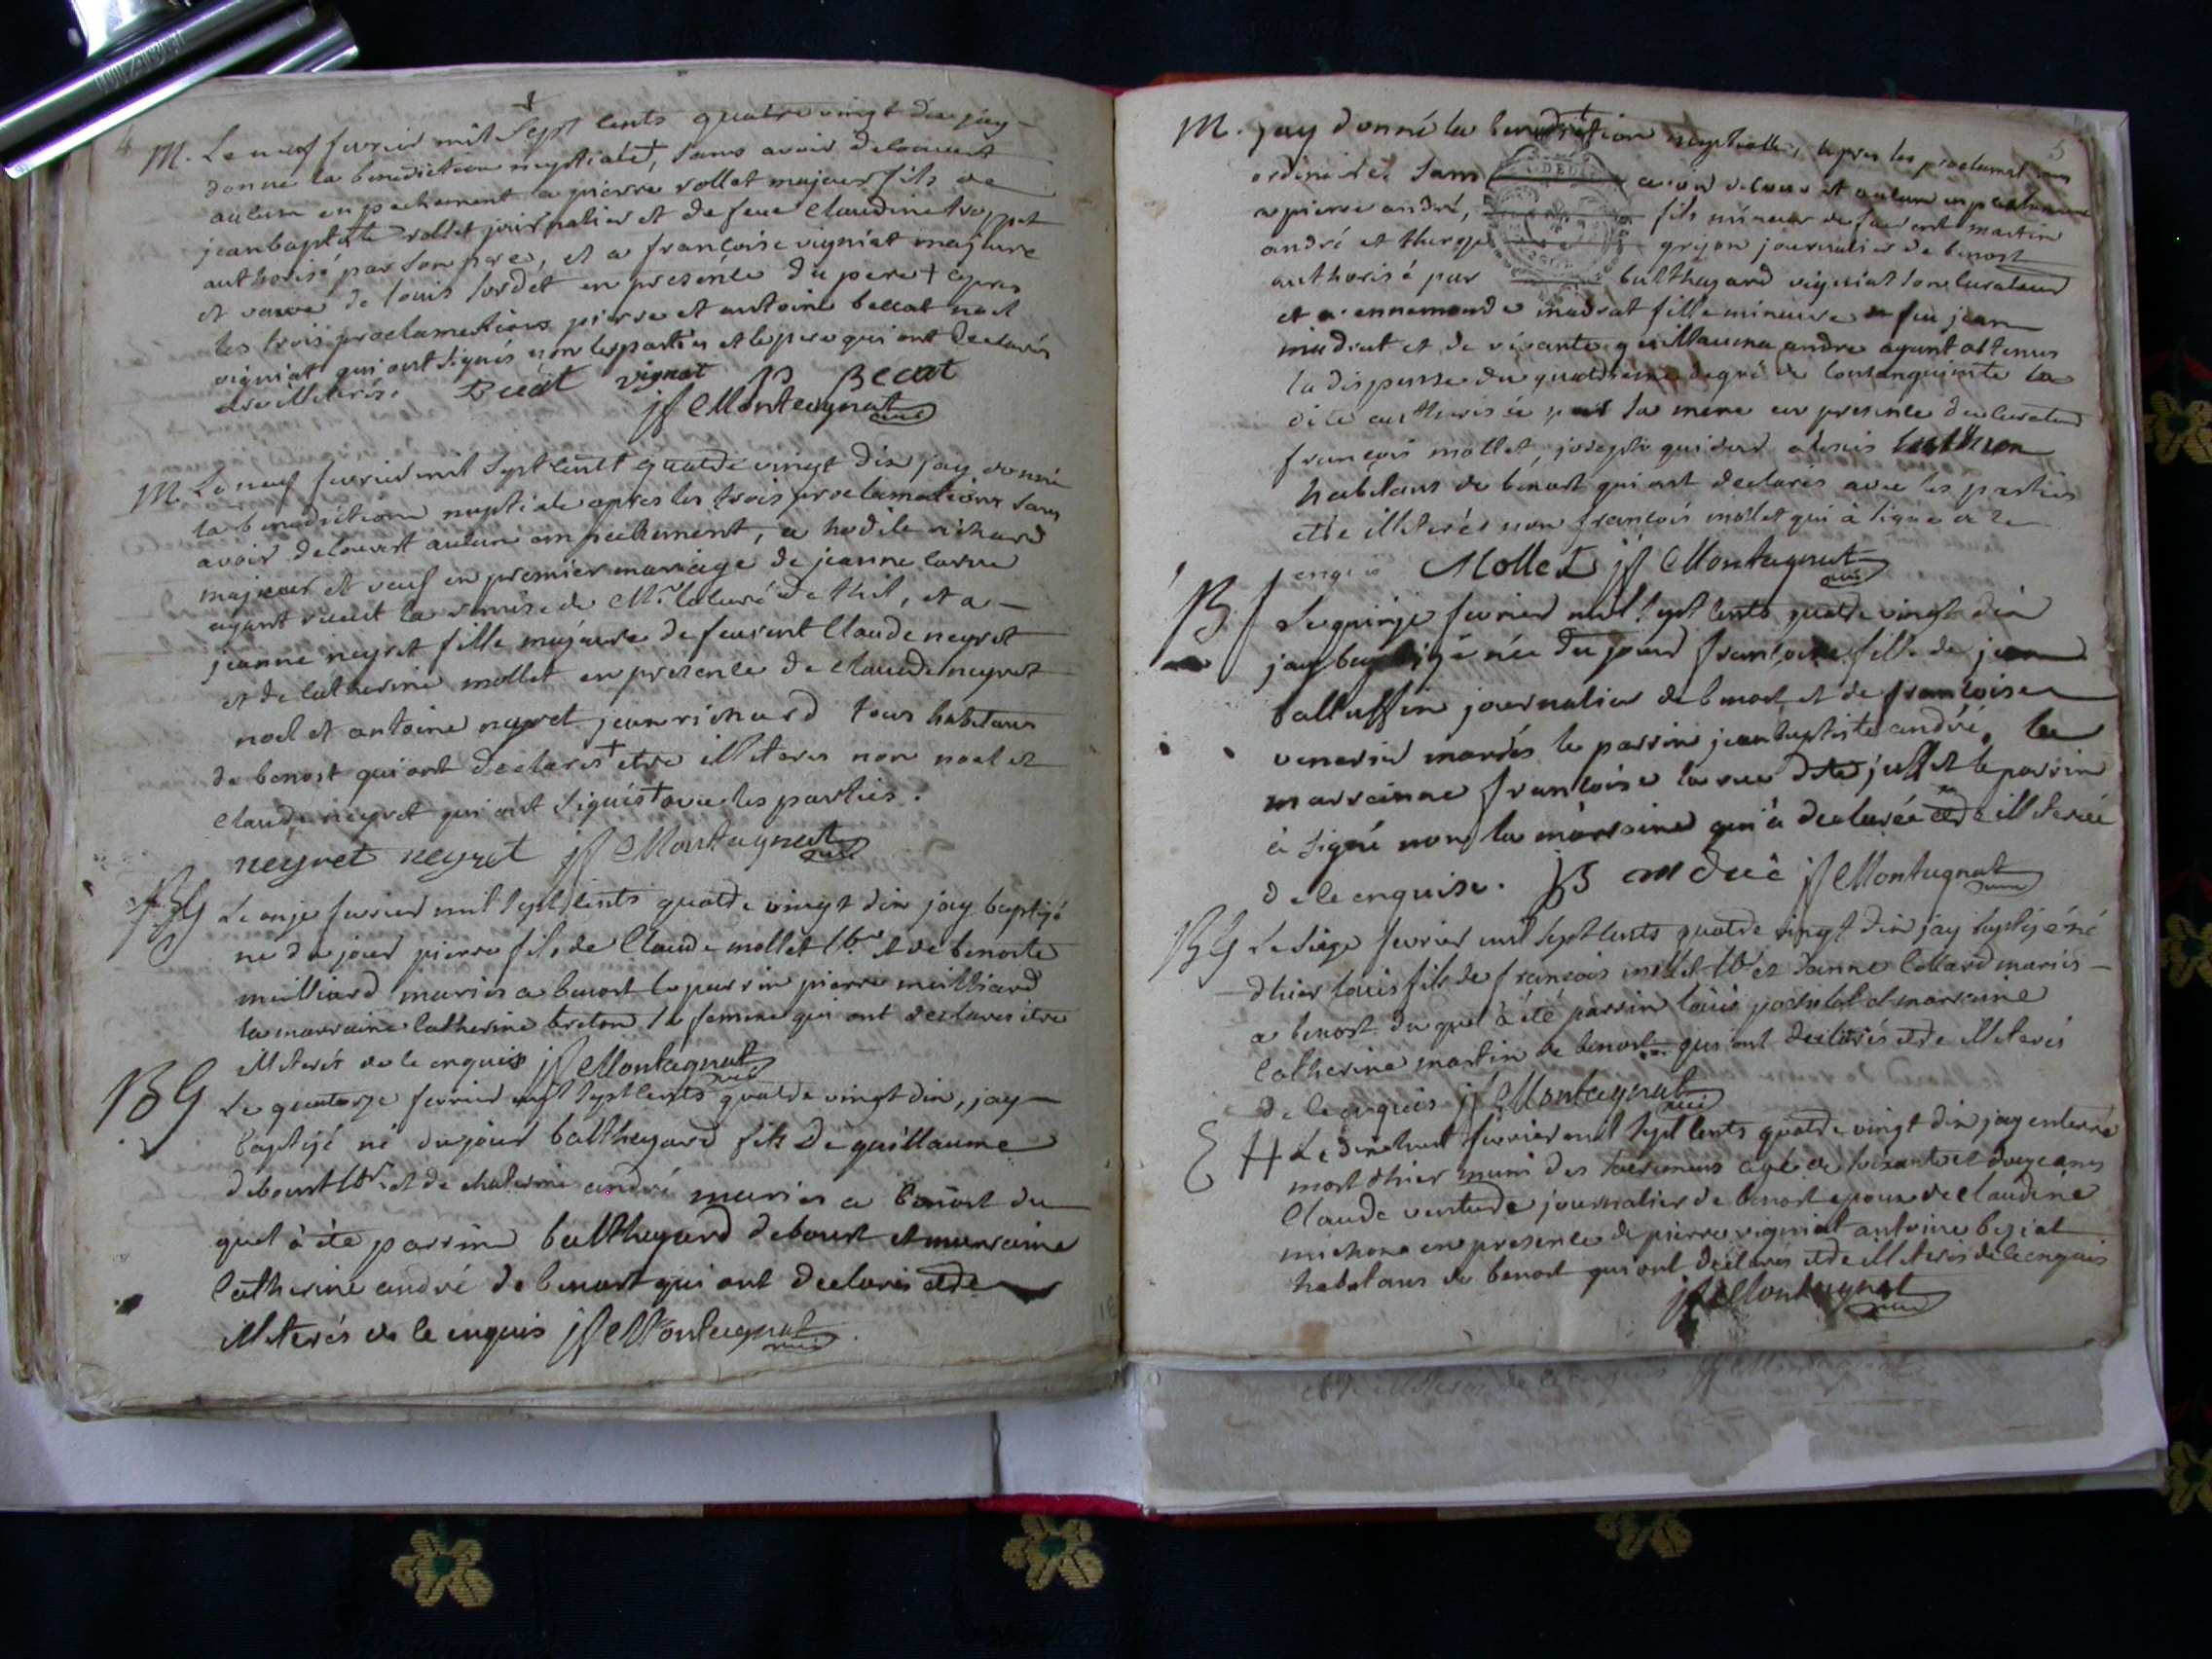 4
M. Le neuf fevrier mil sept cents quatre vingt dix jay
donné la benediction nuptiale +, sans avoir decouvert
aucun empechement a pierre rollet majeur fils de
jean baptiste rollet journalier et de feue Claudine
authorisé par son pere, et a francoise vigniat majeure
et veuve de louis sordet en presence du pere + apres
les trois proclamations pierre et antoine beccat noel
vigniat qui ont signés non les parties et le pere qui ont declarés
etre illiterés. Becat vignat Becat
jf Montagnat curé
M. Le neuf fevrier mil sept cents quatre vingt dix jay donné
la benediction nuptiale apres les trois proclamations sans
avoir decouvert aucun empechement, a hodile richard
majeur et veuf en premier mariage de jeanne
ayant recut la remise de Mr. le curé de thil, et a
jeanne neyret fille majeure de feu Claude neyret
et de Catherine mollet en presence de Claude neyret
noel et antoine neyret jean richard tous habitans
de benost qui ont declarés + etre illiterés non noel et
Claude neyret qui ont signés + avec les parties.
neyret neyret jf Montagnat curé
BG Le onze fevrier mil sept cents quatre vingt dix jay baptizé
né du jour pierre fils de Claude mollet lbr et de benoite
milliard mariés a benost le parrin pierre milliard
la marraine Catherine breton sa femme qui ont declarés etre
illiterés de ce enquis jf Montagnat curé
BG Le quatorze fevrier mil sept cents quatre vingt dix, jay
baptizé né du jour balthazard fils de guillaume
debourt lbr. et de andré mariés a benost du
quel à été parrin balthazard debourt et marraine
Catherine andré de benost qui ont declarés etre
illiterés de ce enquis jf Montagnat curé
5
M. jay donné la benediction nuptialle, apres les proclamations
ordinaires sans avoir decouvert aucun empechement
a pierre andré, fils mineur de martin
andré et grejon journalier de benost
authorisé par balthazard vigniat son curateur
et a ennemonde mudrat fille mineure de feu jean
mudrat et de vivante guillauma andre ayant obtenus
la dispense du quatrieme degré de consanguinité la
dite authorisée par sa mere en presence du curateur
francois mollet, joseph guidard
habitans de benost qui ont declarés avec les parties
etre illiterés non francois mollet qui à signé de ce
enquis Mollet jf Montagnat curé
B f Le quinze fevrier mil sept cents quatre vingt dix
jay baptizé née du jour francoise fille de jean
balluffin journalier de benost et de francoise
venerier mariés le parrin jean baptiste andré, la
marrainne francoise la rue dite juffet le parrin
à signé non la marraine qui à declarée etre illiterée
de ce enquise. JB andré jf Montagnat curé
BG Le seize fevrier mil sept cents quatre vingt dix jay baptizé né
dhier louis fils de francois mollet lbr et danne Collard mariés
a benost du quel à été parrin louis et marraine
Catherine martin de benost qui ont declarés etre illiterés
de ce enquis jf Montagnat curé
E H Le dixhuit fevrier mil sept cents quatre vingt dix jay enterré
mort dhier muni des sacremens agé de soixante et douze ans
Claude journalier de benost epoux de Claudine
michon en presence de pierre vigniat antoine beziat
habitans de benost qui ont declarés etre illiterés de ce enquis
jf Montagnat curé